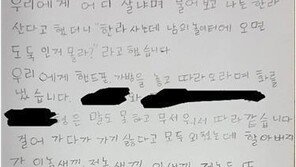 우리에게 어디 살냐며 물어보고 나는 한라
산다고 했더니 "한라사는데 남의 놀이터에 오면
도둑인거 몰라?" 라고 했습니다
우리에게 핸드폰 가방을 놓고 따라오라며 화를
냈습니다
은 말도 못하고 무서워서 따라갔습니다
걸어 가다가 가기 싫다고 모두 외쳤는데 할아버지